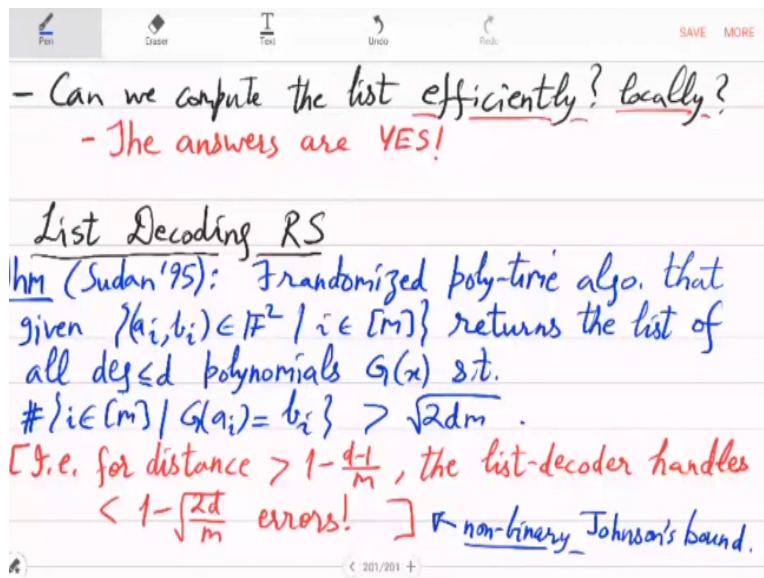 Pen Eraser Text Undo Redo SAVE MORE
- Can we compute the list efficiently? locally?
- The answers are YES!
List Decoding RS
Thm (Sudan '95): ∃ randomized poly-time algo. that
given {(aᵢ,bᵢ) ∈ 𝔽² | i ∈ [m]} returns the list of
all deg≤d polynomials G(x) s.t.
#{i∈[m] | G(aᵢ)=bᵢ} > √2dm .
[I.e. for distance > 1-(d-1)/m, the list-decoder handles
< 1-√(2d/m) errors! ] ↖ non-binary Johnson's bound.
< 201/201 +